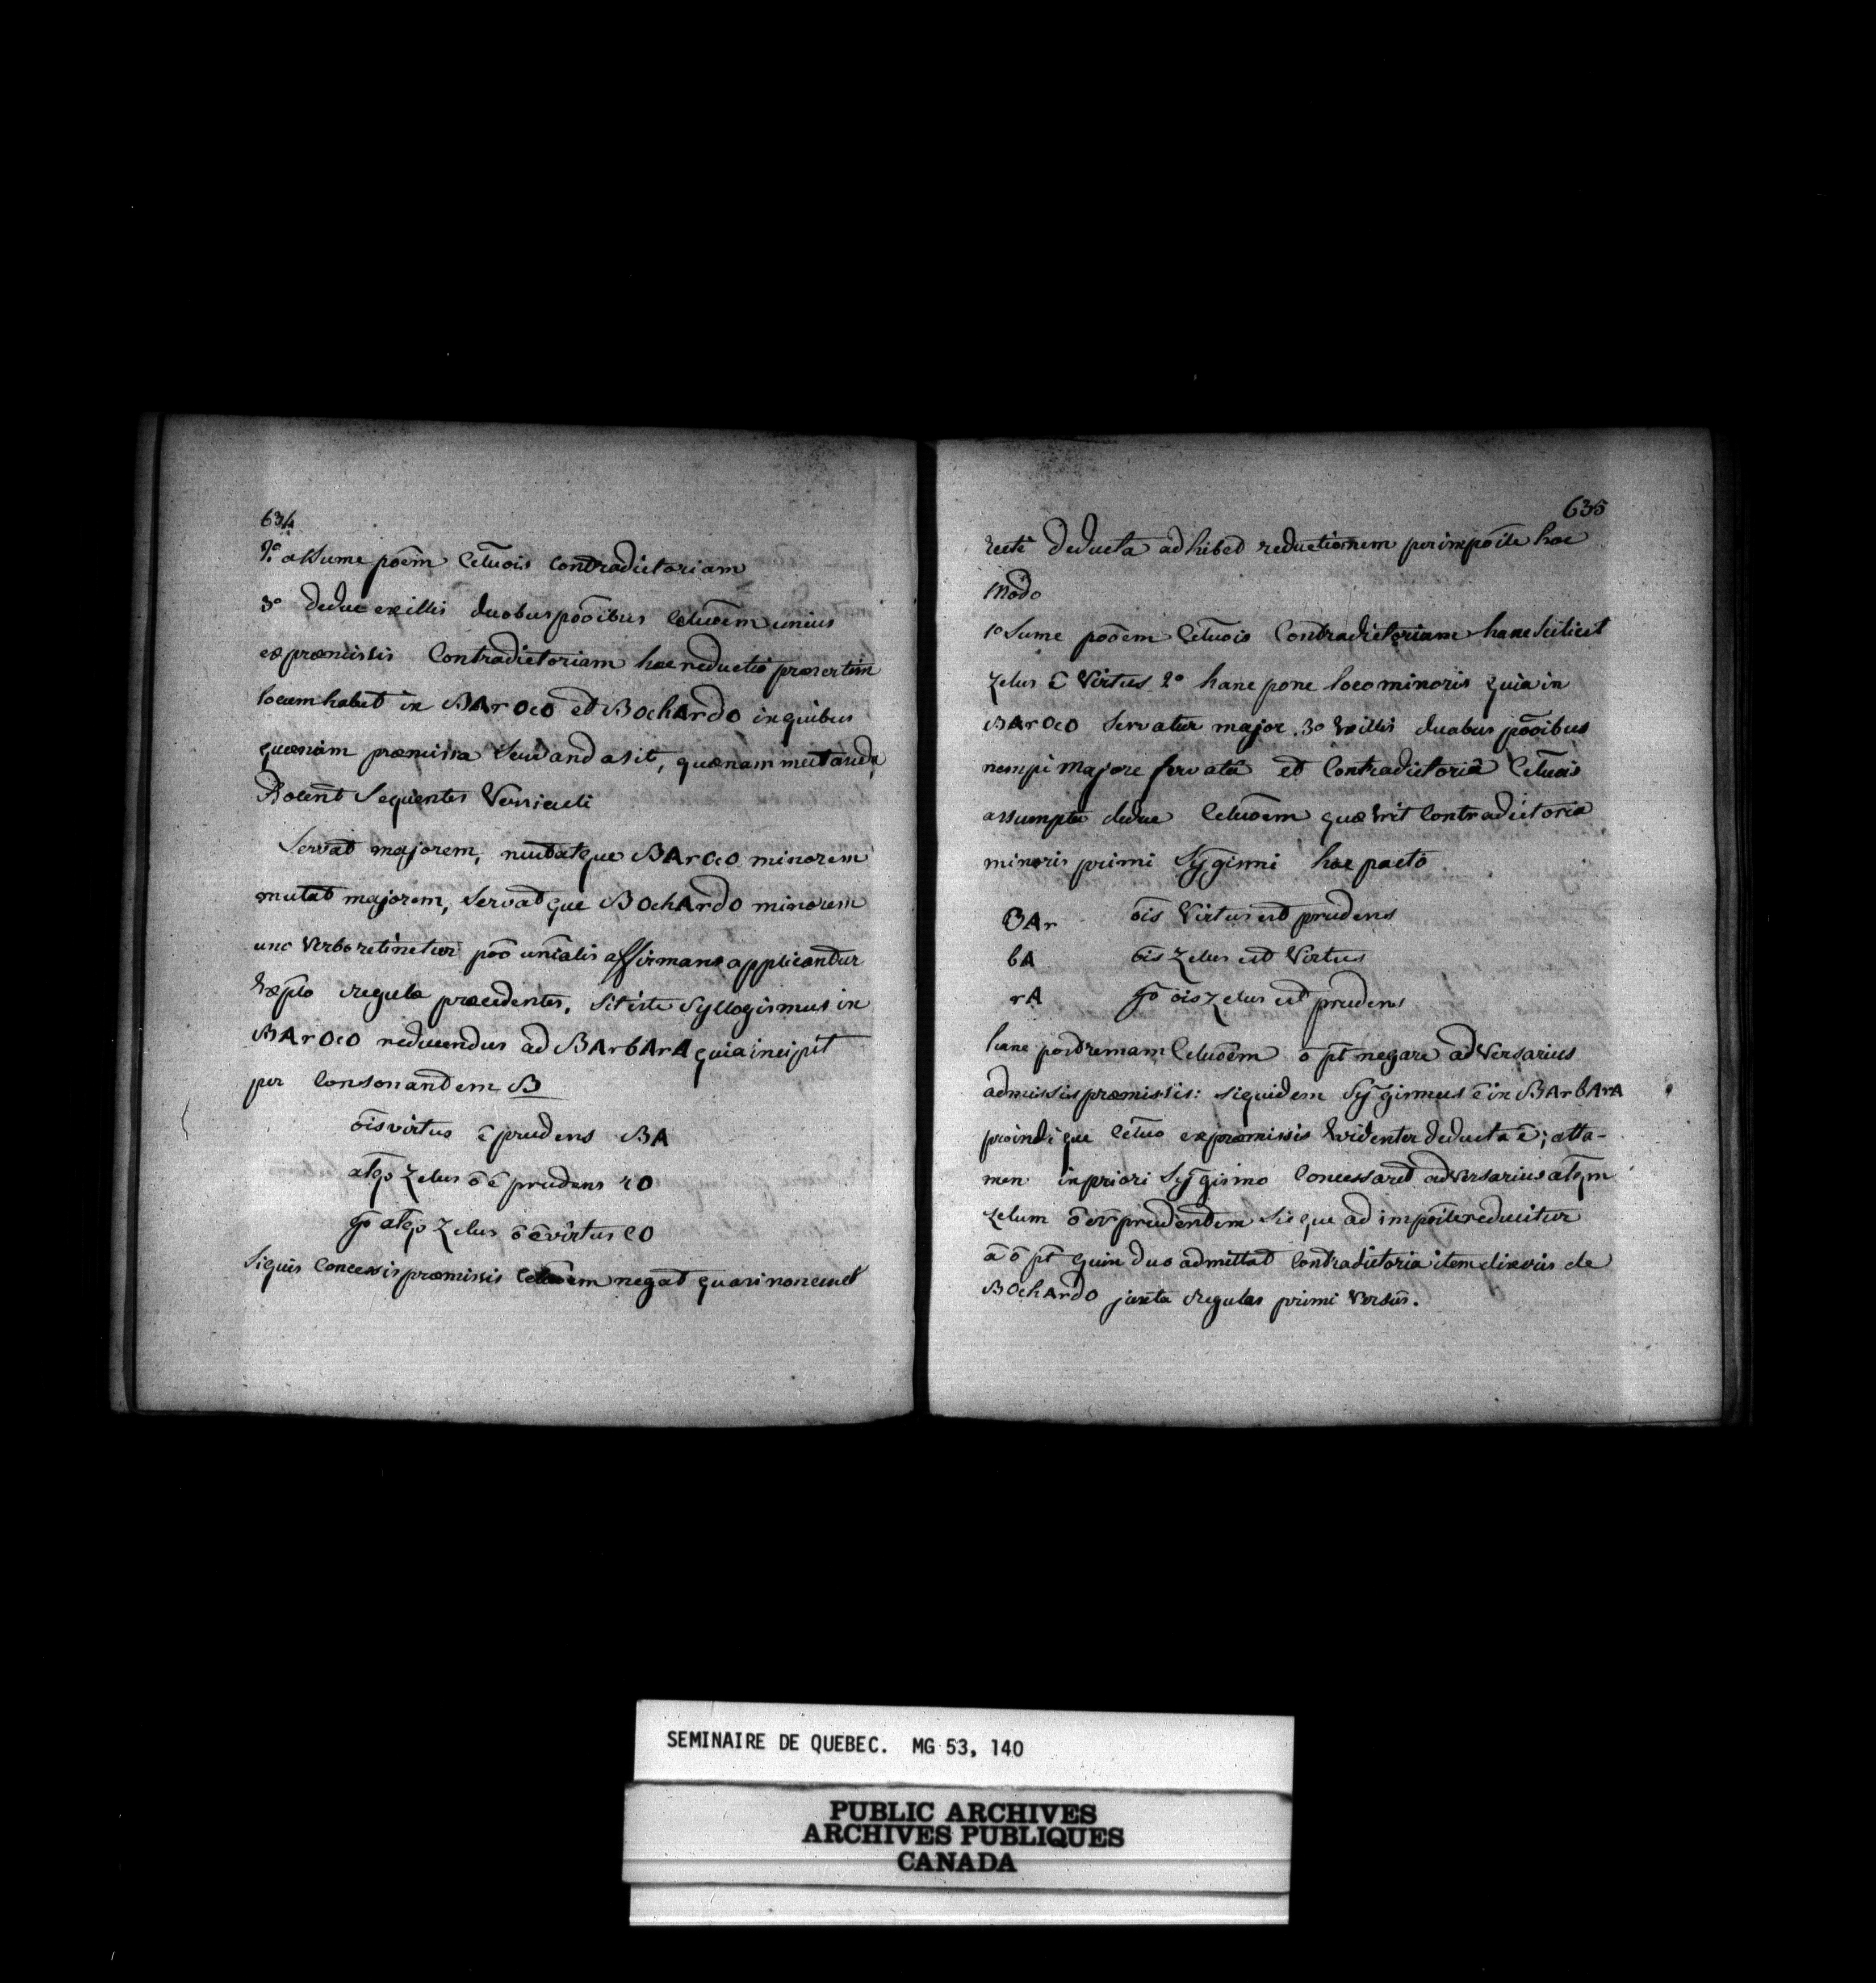 634
2º assume poēm cc̄luōis contradictoriam
3º deduc ex illis duobus poōibus cc̄luōem unius
ex præmissis contradictoriam hæc reductio præsertim
locum habet in BArOcO et BOchArdO in quibus
quænam præmissa servanda sit, quænam mutanda,
Docēnt sequentes versiculi
Servat majorem, mutatque BArOcO minorem
mutat majorem, servatque BOchArdO minorem
uno verbo retinetur poō uniālis affirmans applicandur
exēplo regulæ præcedentes, sit iste syllogismus in
BArOcO reducendus ad BArbArA quia incipit
per consonantem B
oīs virtus ē prudens BA
atq̄o zelus ō ē prudens rO
ḡo atq̄o zelus ō ē virtus cO
Siquis concessis præmissis cc̄luōem negat quasi non esset
635
recte deducta adhibet reductionem per impoīle hoc
modo
1º sume poōem cc̄luōis contradictoriam hanc scilicet
zelus ē virtus 2º hanc pone loco minoris quia in
BArOcO servatur major. 3º ex illis duabus poōibus
nempe majore servatâ et contradictoriâ cc̄luōis
assumpta deduc cc̄luōem quæ erit contradictoria
minoris primi syḡismi hoc pacto
BAr oīs virtus est prudens
bA oīs zelus est virtus
rA ḡo oīs zelus est prudens
hanc postremam cc̄luōem ō pt̄ negare adversarius
admissis præmissis: siquidem syḡismus ē in BArbArA
proindeque cc̄luō ex præmissis evidenter deducta ē; atta-
men in priori syḡismo concesserat adversarius atq̄m
zelum ō eē prudentem sicque ad impoīle reducitur
ā ō pt̄ quin duo admittat contradictoria item dixeris de
BOchArdO juxta regulas primi versūs.
SEMINAIRE DE QUEBEC. MG 53, 140
PUBLIC ARCHIVES
ARCHIVES PUBLIQUES
CANADA